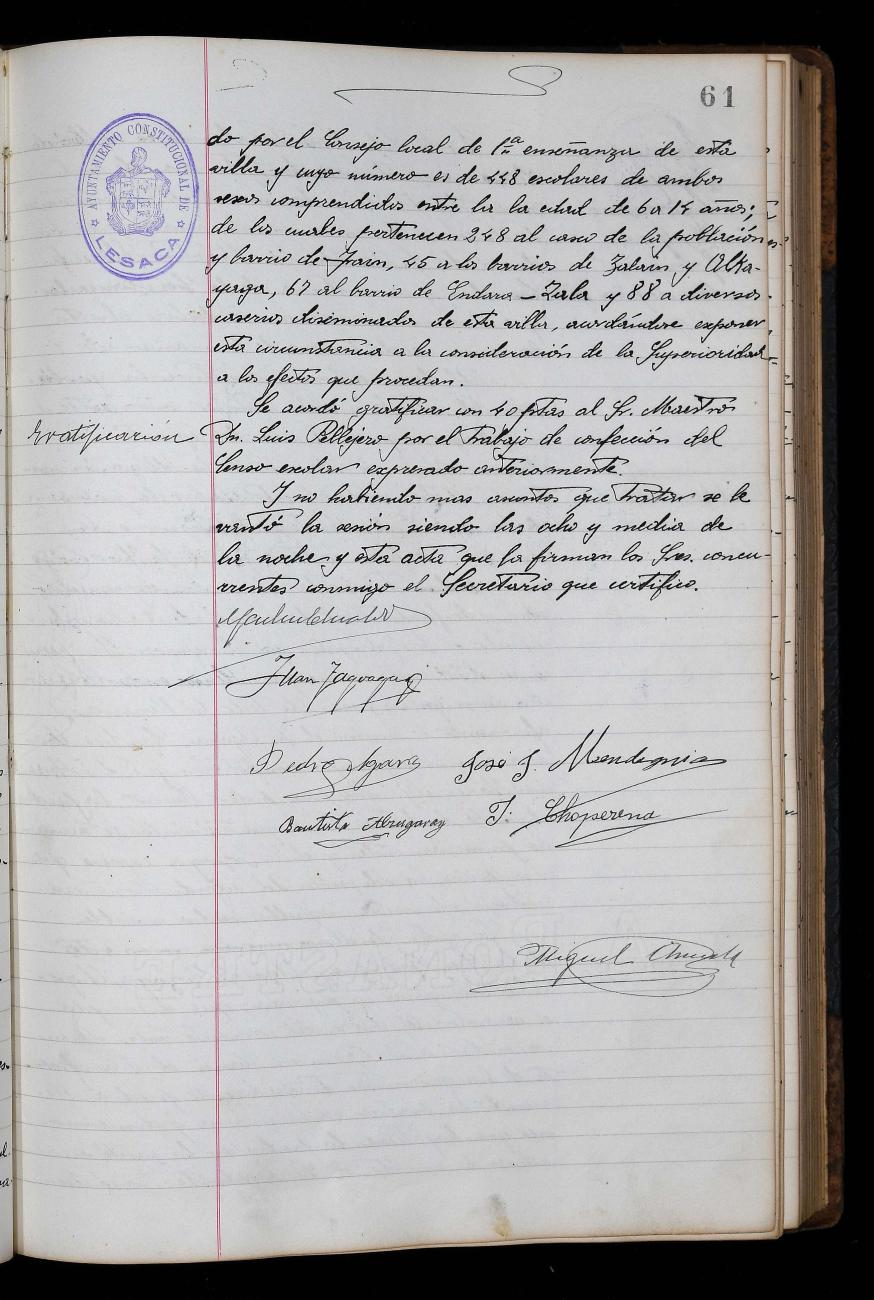 61
AYUNTAMIENTO CONSTITUCIONAL DE
LESACA
do por el Consejo local de 1ª enseñanza de esta
villa y cuyo número es de 448 escolares de ambos
sexos comprendidos entre la la edad de 6 a 14 años;
de los cuales pertenecen 248 al casco de la población
y barrio de Frain, 45 a los barrios de Zalain y Alka-
yaga, 67 al barrio de Endara-Zala y 88 a diversos
caserios diseminados de esta villa, acordándose exponer
esta circunstancia a la consideración de la Superioridad
a los efectos que procedan.
Se acordó gratificar con 40 ptas al Sr. Maestro
Gratificación
Dn. Luis Pellejero por el trabajo de confección del
Censo escolar expresado anteriormente.
Y no habiendo mas asuntos que tratar se le
vantó la sesión siendo las ocho y media de
la noche y esta acta que la firman los Sres. concu-
rrentes conmigo el Secretario que certifico.
Juan
Pedro
José J. Mendeguia
Bautista
T. Choperena
Miguel